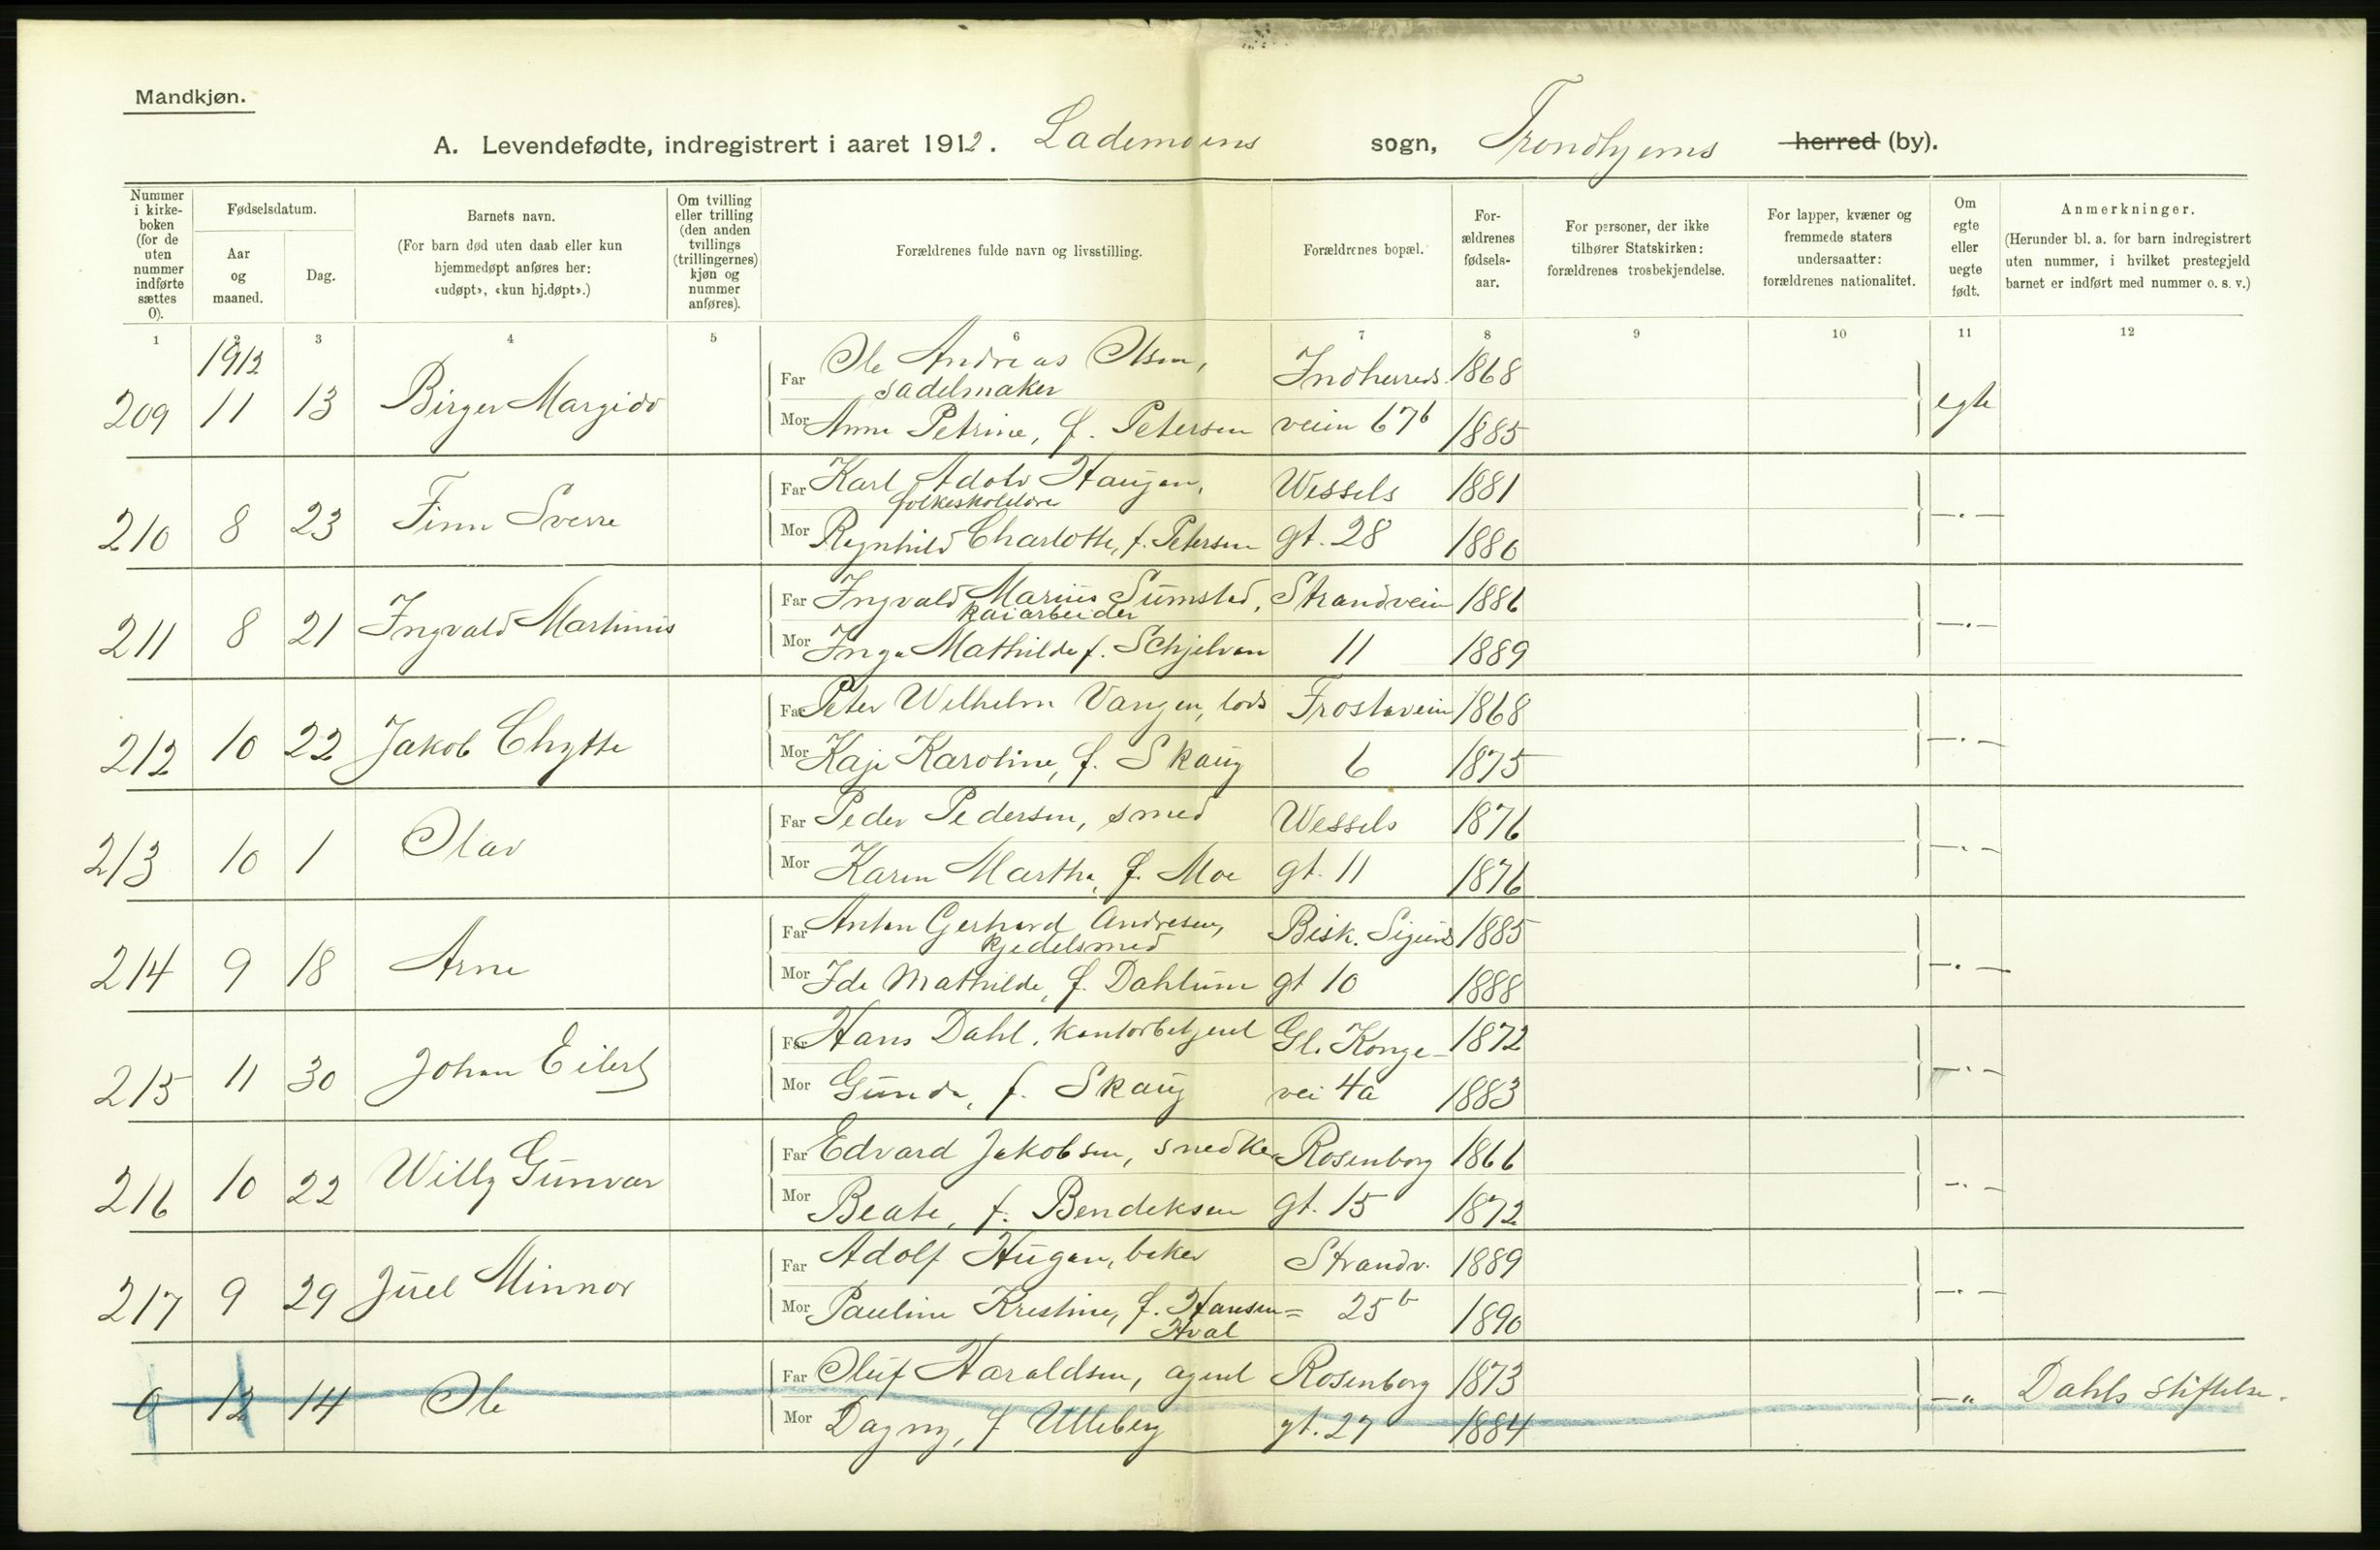 Mandkjøn.
A. Levendefødte, indregistrert i aaret 1912. Lademoens sogn, Trondhjems herred (by).
Nummer i kirke-boken (for de uten nummer indførte sættes 0).
Fødselsdatum.
Aar og maaned.
Dag.
Barnets navn.
(For barn død uten daab eller kun hjemmedøpt anføres her: «udøpt», «kun hj.døpt».)
Om tvilling eller trilling (den anden tvillings (trillingernes) kjøn og nummer anføres).
Forældrenes fulde navn og livsstilling.
Forældrenes bopæl.
For-ældrenes fødsels-aar.
For personer, der ikke tilhører Statskirken: forældrenes trosbekjendelse.
For lapper, kvæner og fremmede staters undersaatter: forældrenes nationalitet.
Om egte eller uegte født.
Anmerkninger.
(Herunder bl. a. for barn indregistrert uten nummer, i hvilket prestegjeld barnet er indført med nummer o. s. v.)
1 2 3 4 5 6 7 8 9 10 11 12
1912
Far Ole Andreas Olsen, Indherreds 1868
sadelmaker
209 11 13 Birger Margido egte
Mor Anna Petrine, f. Petersen veien 67b 1885
Far Karl Adolv Haugan, Wessels 1881
folkeskolelære
210 8 23 Finn Sverre —.—
Mor Ragnhild Charlotte, f. Petersen gt. 28 1880
Far Ingvald Marius Sumstad, Strandveien 1886
kaiarbeider
211 8 21 Ingvald Martinus —.—
Mor Inga Mathilde f. Schjelvan 11 1889
Far Peter Wilhelm Vangen, lods Frostavein 1868
212 10 22 Jakob Chytte —.—
Mor Kaja Karoline, f. Skaug 6 1875
Far Peder Pedersen, smed Wessels 1876
213 10 1 Olav —.—
Mor Karen Martha, f. Moe gt. 11 1876
Far Anton Gerhard Andresen, Bisk. Sigurds 1885
kjedelsmed
214 9 18 Arne —.—
Mor Ida Mathilde, f. Dahlum gt 10 1888
Far Hans Dahl, kontorbetjent Gl. Konge- 1872
215 11 30 Johan Eilert —.—
Mor Gunda, f. Skaug vei 4a 1883
Far Edvard Jakobsen, snedker Rosenborg 1866
216 10 22 Willy Gunvar —.—
Mor Beate, f. Bendeksen gt. 15 1872
Far Adolf Hugan, baker Strandv. 1889
217 9 29 Juel Minnor —.—
Mor Pauline Kristine, f. Hansen = 25b 1890
Hval
Far Oluf Haraldsen, agent Rosenborg 1873
0 12 14 Ole —"— Dahls stiftelse.
Mor Dagny, f Ulleberg gt. 27 1884